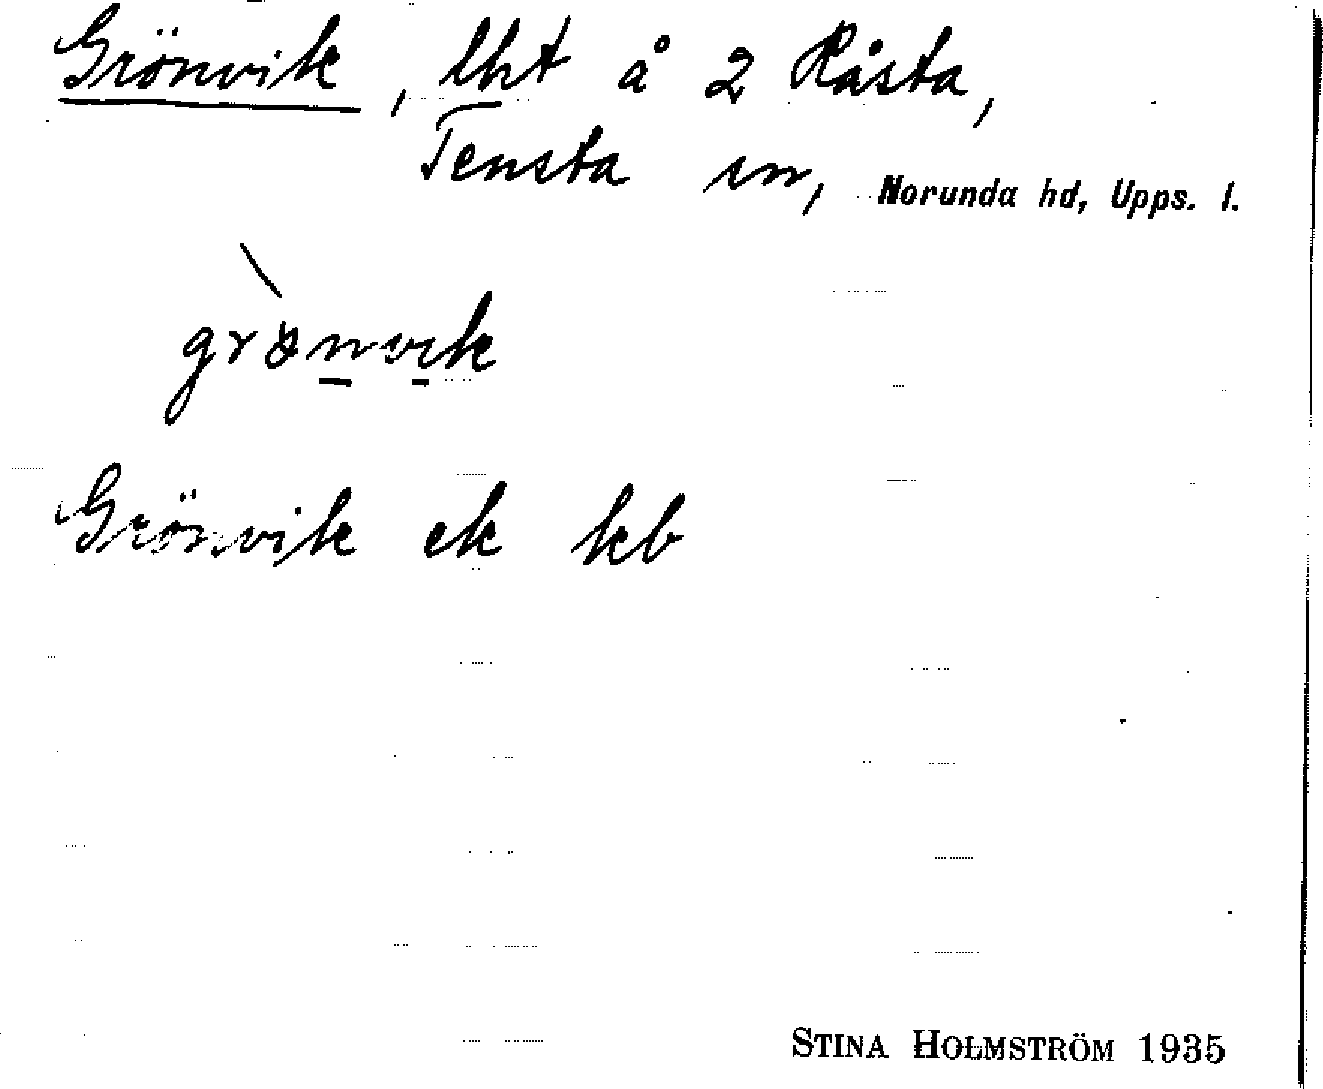 Grönvik, lht å 2 Råsta,
Tensta sn, Norunda hd, Upps. l.
Grönvik ek kb
STINA HOLMSTRÖM 1935